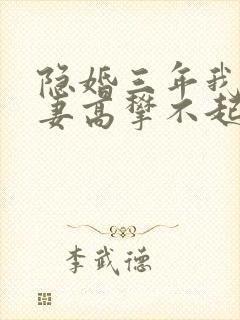 隐婚三年我
妻高攀不起
李武德